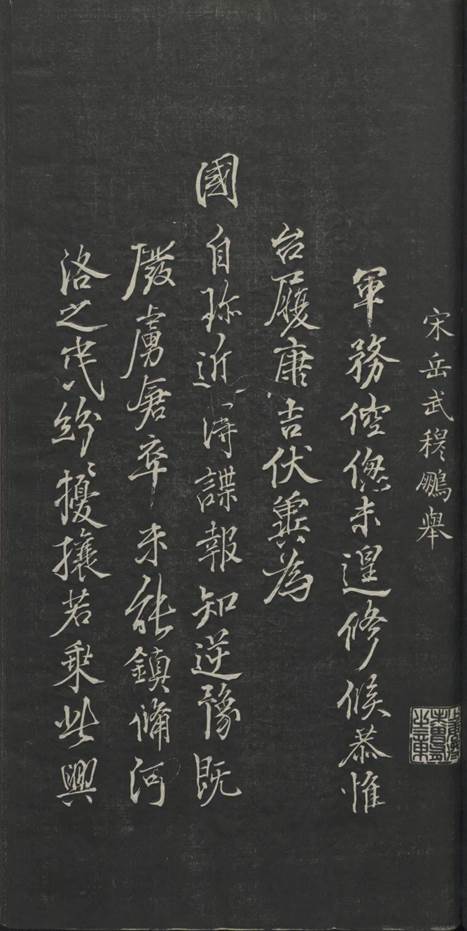 宋岳武穆鵬舉
軍務倥偬未遑修候恭惟
台履康吉伏冀為
國自珍近得諜報知逆豫既
廢虜倉卒未能鎮備河
洛之民紛紛擾攘若乘此興